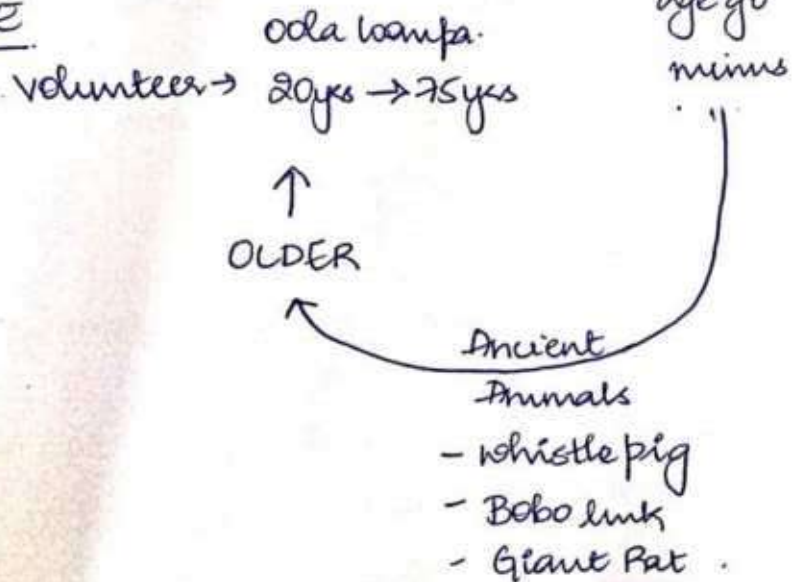 e
Oola loompa.
volunteer → 20yrs → 75yrs
age go
minus
↑
OLDER
Ancient
Animals
- whistle pig
- Bobo link
- Giant Rat .